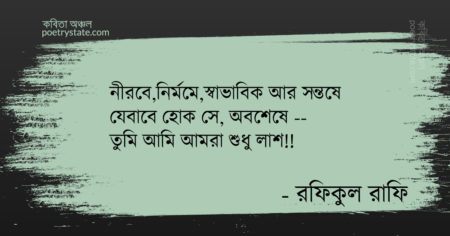 কবিতা অঞ্চল
poetrystate.com
নীরবে,নির্মমে,স্বাভাবিক আর সন্তষে
যেবাবে হোক সে, অবশেষে --
তুমি আমি আমরা শুধু লাশ!!
- রফিকুল রাফি